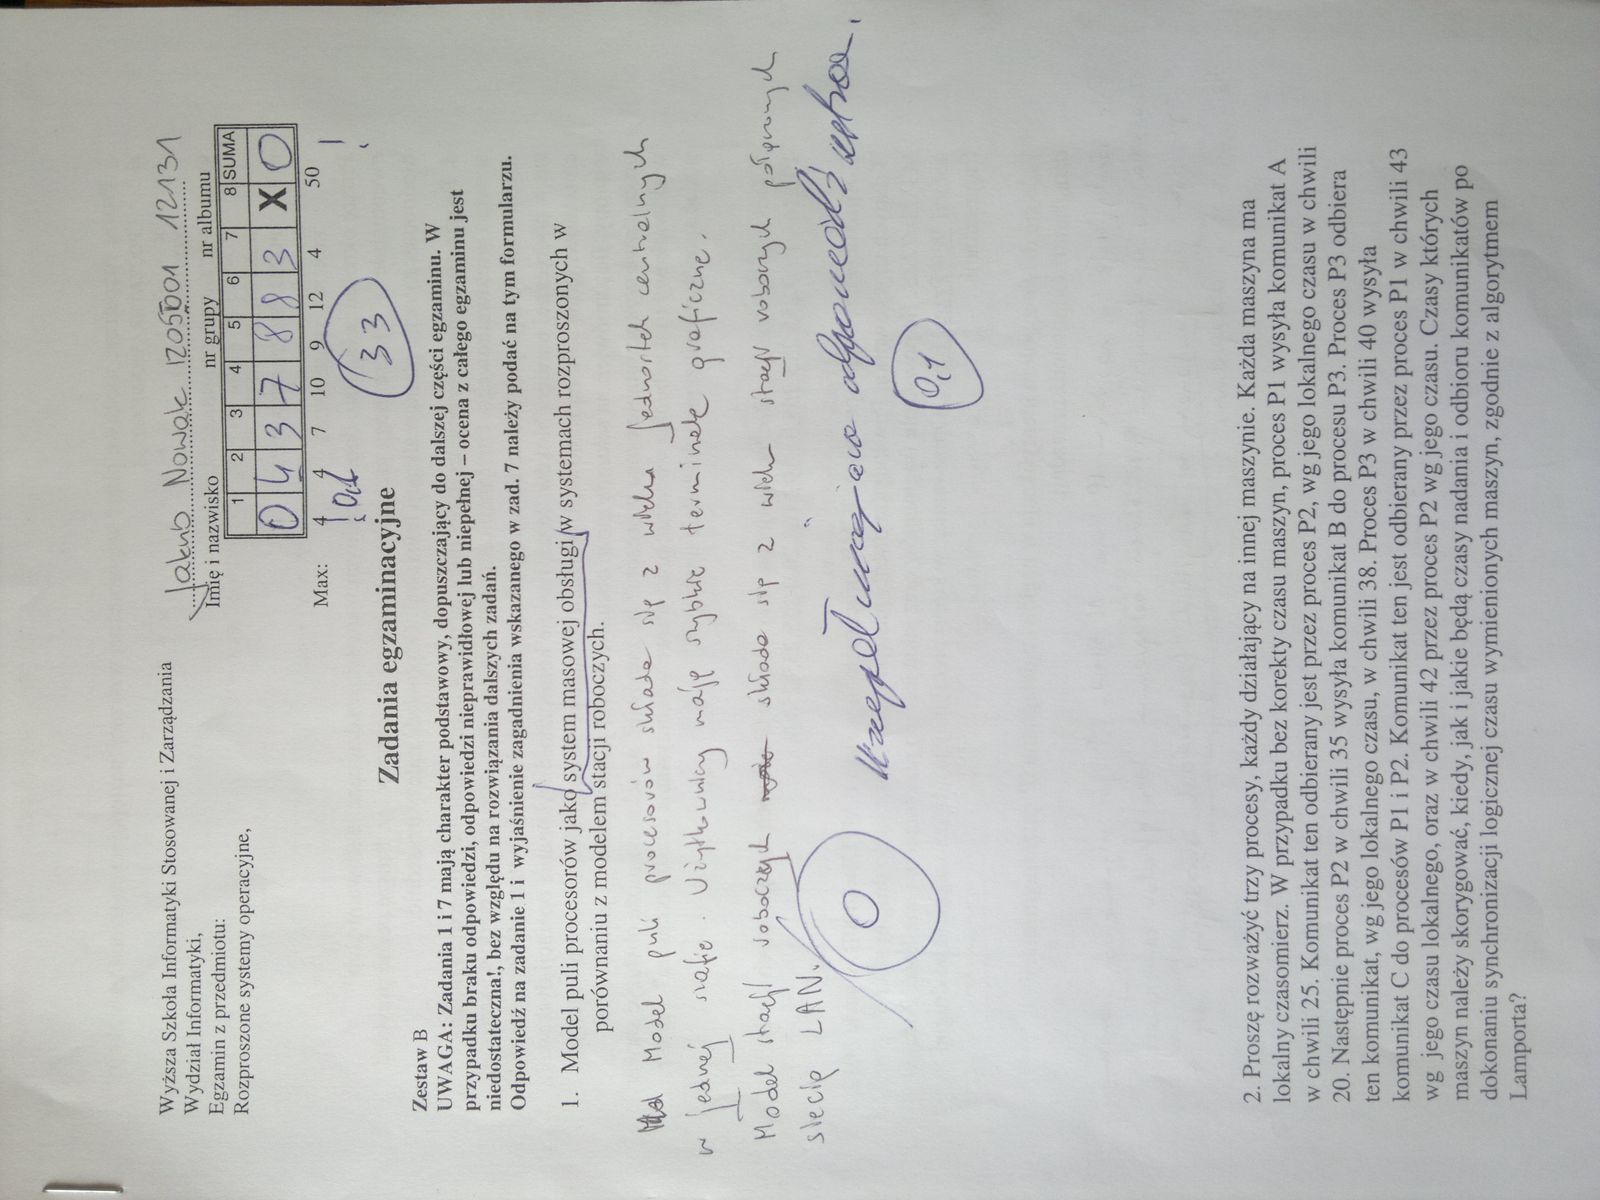 Wyższa Szkoła Informatyki Stosowanej i Zarządzania
Wydział Informatyki,
Egzamin z przedmiotu:
Rozproszone systemy operacyjne,
Jakub Nowak IZ05D01 12131
Imię i nazwisko nr grupy nr albumu
1 2 3 4 5 6 7 8 SUMA
0 4 3 7 8 8 3 X 0
Max: 4 4 7 10 9 12 4 50
! 0,1 !
33
Zadania egzaminacyjne
Zestaw B
UWAGA: Zadania 1 i 7 mają charakter podstawowy, dopuszczający do dalszej części egzaminu. W
przypadku braku odpowiedzi, odpowiedzi nieprawidłowej lub niepełnej – ocena z całego egzaminu jest
niedostateczna!, bez względu na rozwiązania dalszych zadań.
Odpowiedź na zadanie 1 i wyjaśnienie zagadnienia wskazanego w zad. 7 należy podać na tym formularzu.
1. Model puli procesorów jako system masowej obsługi w systemach rozproszonych w
porównaniu z modelem stacji roboczych.
Model puli procesorów składa się z wielu jednostek centralnych
w jednej szafie. Użytkownicy mają szybkie terminale graficzne.
Model stacji roboczych składa się z wielu stacji roboczych połączonych
siecią LAN.
0
odpowiedź
0,1
2. Proszę rozważyć trzy procesy, każdy działający na innej maszynie. Każda maszyna ma
lokalny czasomierz. W przypadku bez korekty czasu maszyn, proces P1 wysyła komunikat A
w chwili 25. Komunikat ten odbierany jest przez proces P2, wg jego lokalnego czasu w chwili
20. Następnie proces P2 w chwili 35 wysyła komunikat B do procesu P3. Proces P3 odbiera
ten komunikat, wg jego lokalnego czasu, w chwili 38. Proces P3 w chwili 40 wysyła
komunikat C do procesów P1 i P2. Komunikat ten jest odbierany przez proces P1 w chwili 43
wg jego czasu lokalnego, oraz w chwili 42 przez proces P2 wg jego czasu. Czasy których
maszyn należy skorygować, kiedy, jak i jakie będą czasy nadania i odbioru komunikatów po
dokonaniu synchronizacji logicznej czasu wymienionych maszyn, zgodnie z algorytmem
Lamporta?